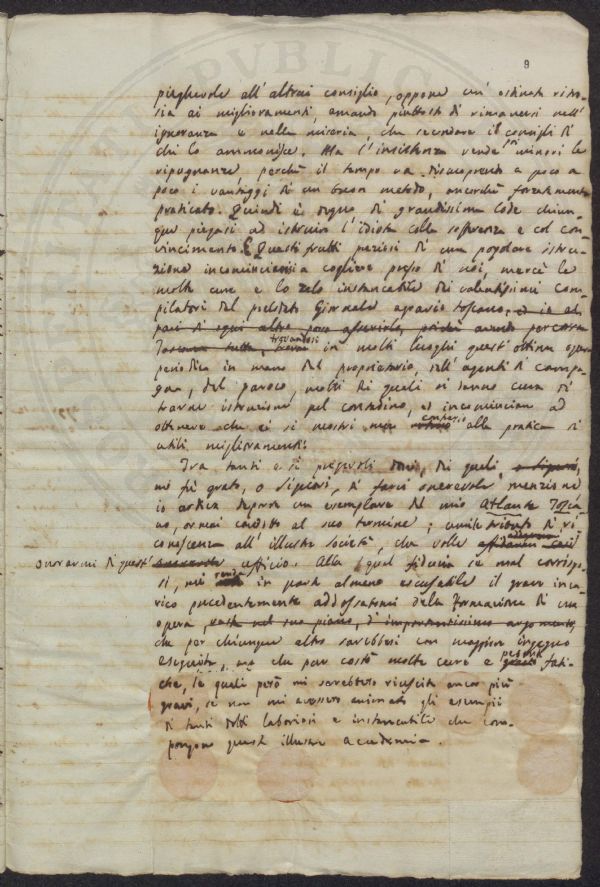 9
pieghevole all'altrui consiglio, oppone un'ostinata ritro-
sia ai miglioramenti, amando piuttosto di rimanersi nell'
ignoranza e nella miseria, che secondare il consigli di
chi lo ammonisce. Ma l'insistenza rende minori le
ripugnanze, perchè il tempo va discuoprendo a poco a
poco i vantaggi di un buon metodo, ancorchè forzatamente
praticato. Quindi è degno di grandissima lode chiun-
que piegasi ad istruire l'idiota colla sofferenza e col con-
vincimento. E Questi frutti preziosi di una popolare istru-
zione incominciansi a cogliere presso di noi, mercè le
molte cure e lo zelo instancabile dei valentissimi com-
pilatori del prelodato Giornale agrario toscano, ed io al
pari di ogni altro posso asserirlo, perchè avendo percorsa
Toscana tutta, trovai trovandosi in molti luoghi quest'ottima opera
periodica in mano del proprietario, dell'agente di campa-
gna, del paroco, molti dei quali si danno cura di
trarne istruzione pel contadino, ed incominciano ad
ottenere che ei si mostri men contrario alla pratica di
utili miglioramenti.
Tra tanti e sì pregevoli doni, dei quali o Signori,
mi fù grato, o Signori, di farvi onorevole menzione
io ardisco deporre un esemplare del mio Atlante Tosca-
no, ormai condotto al suo termine; umile tributo di ri-
conoscenza all'illustre società, che volle affidarmi
onorarmi di quest' ufficio. Alla qual fiducia se mal corrispo-
si, mi rende in parte almeno escusabile il grave inca-
rico precedentemente addossatomi della formazione di una
opera, vasta nel suo piano, d'importantissimo argomento,
che per chiunque altro sarebbesi con maggiore ingegno
eseguita, ma che pur costò molte cure e penose fati-
che, le quali però mi sarebbero riuscite ancor più
gravi, se non mi avessero animato gli esempii
di tanti dotti laboriosi e instancabili che com-
pongono questa illustre accademia.